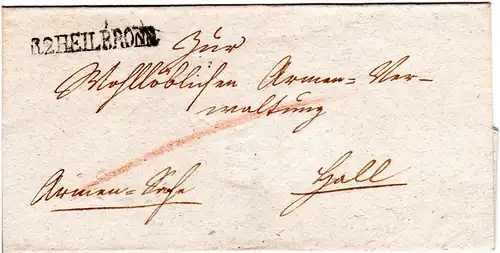 R.2.HEILBRONN
Zur
Wohllöblichen Armen=Ver-
waltung
Armen=Sache Hall